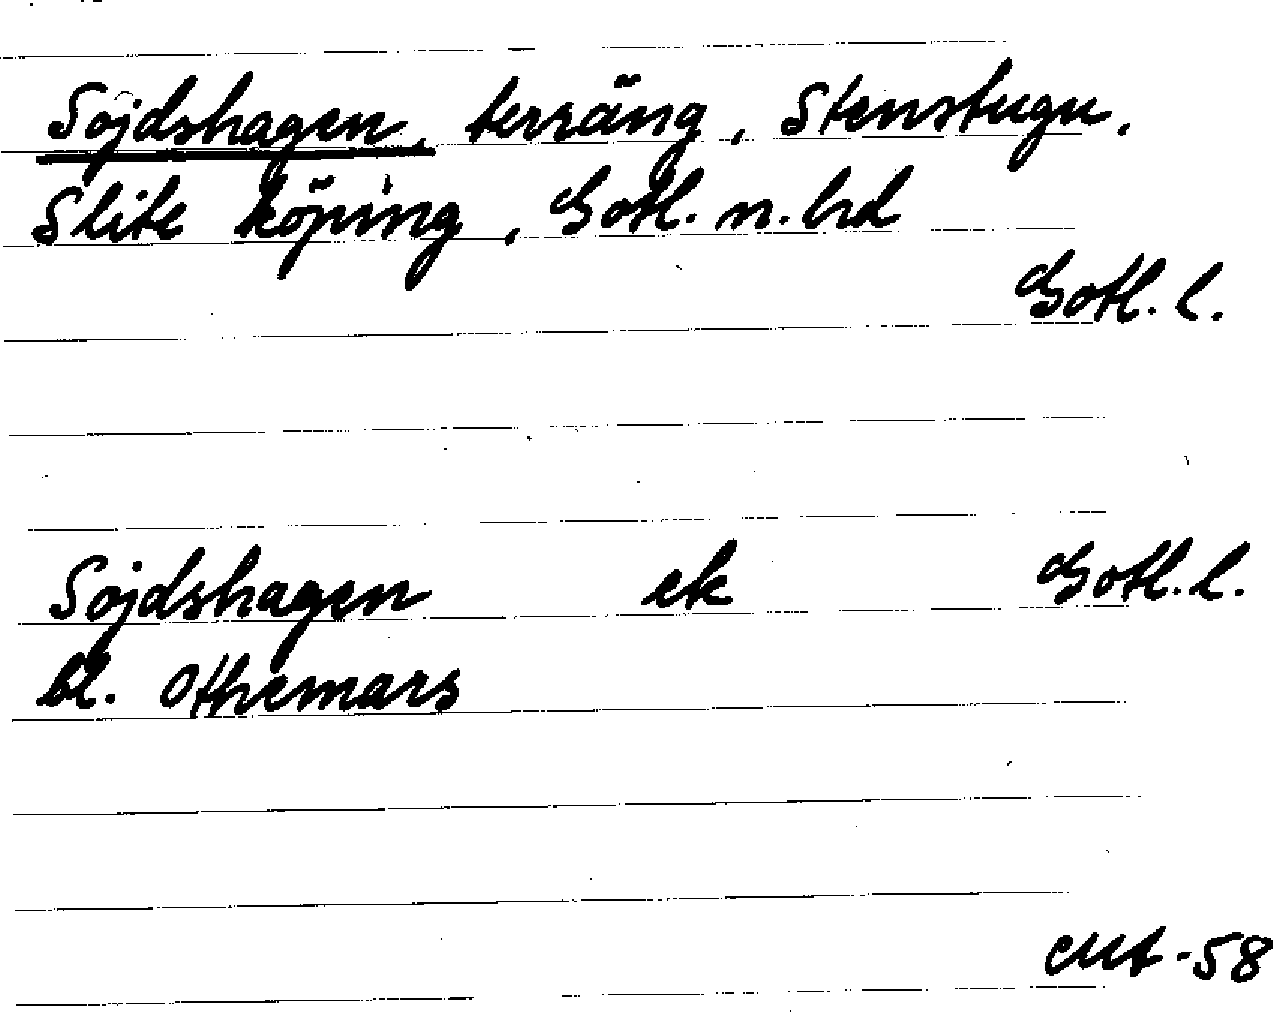 Sojdshagen, terräng, Stenstugu,
Slite köping, Gotl. n. hd
Gotl. l.
Sojdshagen ek Gotl. l.
bl. Othemars
-58